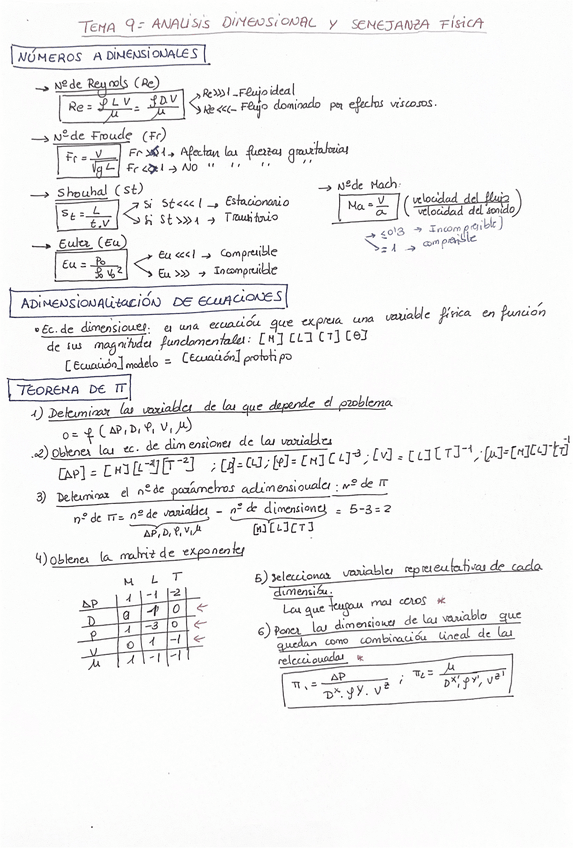 TEMA 9= ANALISIS DIMENSIONAL Y SEMEJANZA FÍSICA
NÚMEROS ADIMENSIONALES
→ Nº de Reynols (Re)
Re = ρ L V / μ = ρ D V / μ
→ Re>>>1 - Flujo ideal
→ Re <<<- Flujo dominado por efectos viscosos.
→ Nº de Froude (Fr)
Fr = V / √g L
Fr > 1 → Afectan las fuerzas gravitatorias
Fr < 1 → NO " " " "
→ Strouhal (St)
St = L / t.V
→ Si St<<<1 → Estacionario
→ Si St >>>1 → Transitorio
→ Nº de Mach:
Ma = V / a ( velocidad del flujo / velocidad del sonido )
→ ≤0'3 → Incompresible)
→ = 1 → compresible
→ Euler (Eu)
Eu = P0 / ρ0 V0²
→ Eu <<<1 → Compresible
→ Eu >>> → Incompresible
ADIMENSIONALITACIÓN DE ECUACIONES
• Ec. de dimensiones: es una ecuación que expresa una variable física en función
de sus magnitudes fundamentales: [M] [L] [T] [θ]
[Ecuación] modelo = [Ecuación] prototipo
TEOREMA DE Π
1) Determinar las variables de las que depende el problema
0 = f ( ΔP, D, ρ, V, μ)
2) Obtener las ec. de dimensiones de las variables
[ΔP] = [M][L⁻¹][T⁻²] ; [D]=[L]; [ρ]=[M][L]⁻³; [V] = [L][T]⁻¹; [μ]=[M][L]⁻¹[T]⁻¹
3) Determinar el nº de parámetros adimensionales: nº de Π
nº de Π = nº de variables - nº de dimensiones = 5-3=2
ΔP, D, ρ, V, μ [M][L][T]
4) Obtener la matriz de exponentes
M L T
ΔP 1 -1 -2
D 0 1 0 ←
ρ 1 -3 0 ←
V 0 1 -1 ←
μ 1 -1 -1
5) Seleccionar variables representativas de cada
dimensión.
Las que tengan mas ceros *
6) Poner las dimensiones de las variables que
quedan como combinación lineal de las
seleccionadas *
Π₁ = ΔP / Dˣ . ρʸ . Vᶻ ; Π₂ = μ / Dˣ' , ρʸ' , Vᶻ'